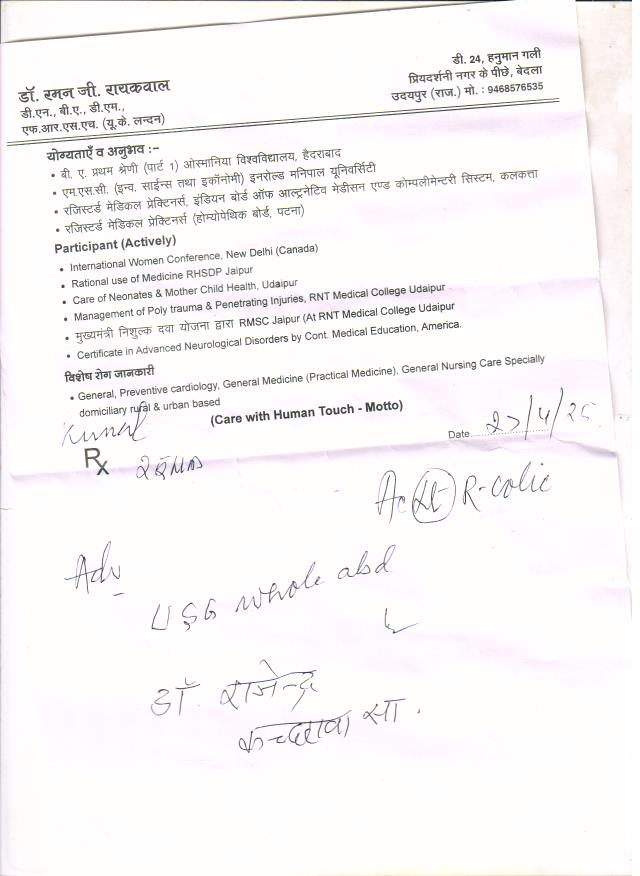 डॉ. रमन जी. रायकवाल
डी.एन., बी.ए., डी.एम.,
एफ.आर.एस.एच. (यू.के. लन्दन)
डी. 24, हनुमान गली
प्रियदर्शनी नगर के पीछे, बेदला
उदयपुर (राज.) मो. : 9468576535
योग्यताएँ व अनुभव :-
• बी. ए. प्रथम श्रेणी (पार्ट 1) ओस्मानिया विश्वविद्यालय, हैदराबाद
• एम.एस.सी. (इन्व. साईन्स तथा इकॉनोमी) इनरोल्ड मनिपाल यूनिवर्सिटी
• रजिस्टर्ड मेडिकल प्रेक्टिनर्स, इंडियन बोर्ड ऑफ आल्ट्रनेटिव मेडीसन एण्ड कोम्पलीमेन्टरी सिस्टम, कलकत्ता
• रजिस्टर्ड मेडिकल प्रेक्टिनर्स (होम्योपेथिक बोर्ड, पटना)
Participant (Actively)
• International Women Conference, New Delhi (Canada)
• Rational use of Medicine RHSDP Jaipur
• Care of Neonates & Mother Child Health, Udaipur
• Management of Poly trauma & Penetrating Injuries, RNT Medical College Udaipur
• मुख्यमंत्री निशुल्क दवा योजना द्वारा RMSC Jaipur (At RNT Medical College Udaipur
• Certificate in Advanced Neurological Disorders by Cont. Medical Education, America.
विशेष रोग जानकारी
• General, Preventive cardiology, General Medicine (Practical Medicine), General Nursing Care Specially
domiciliary rural & urban based
(Care with Human Touch - Motto)
Kunal
Date 27/4/25
Rx
Ac Lt R-colic
Adv
USG whole abd
डॉ. राजेन्द्र
सा.